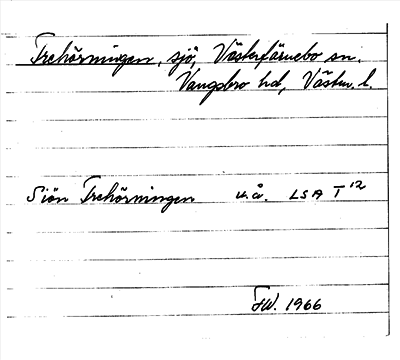 Trehörningen, sjö, Västerfärnebo sn.
Vangsbro hd, Västm. l.
Siön Trehörningen u.å. LSA T¹²
FW. 1966